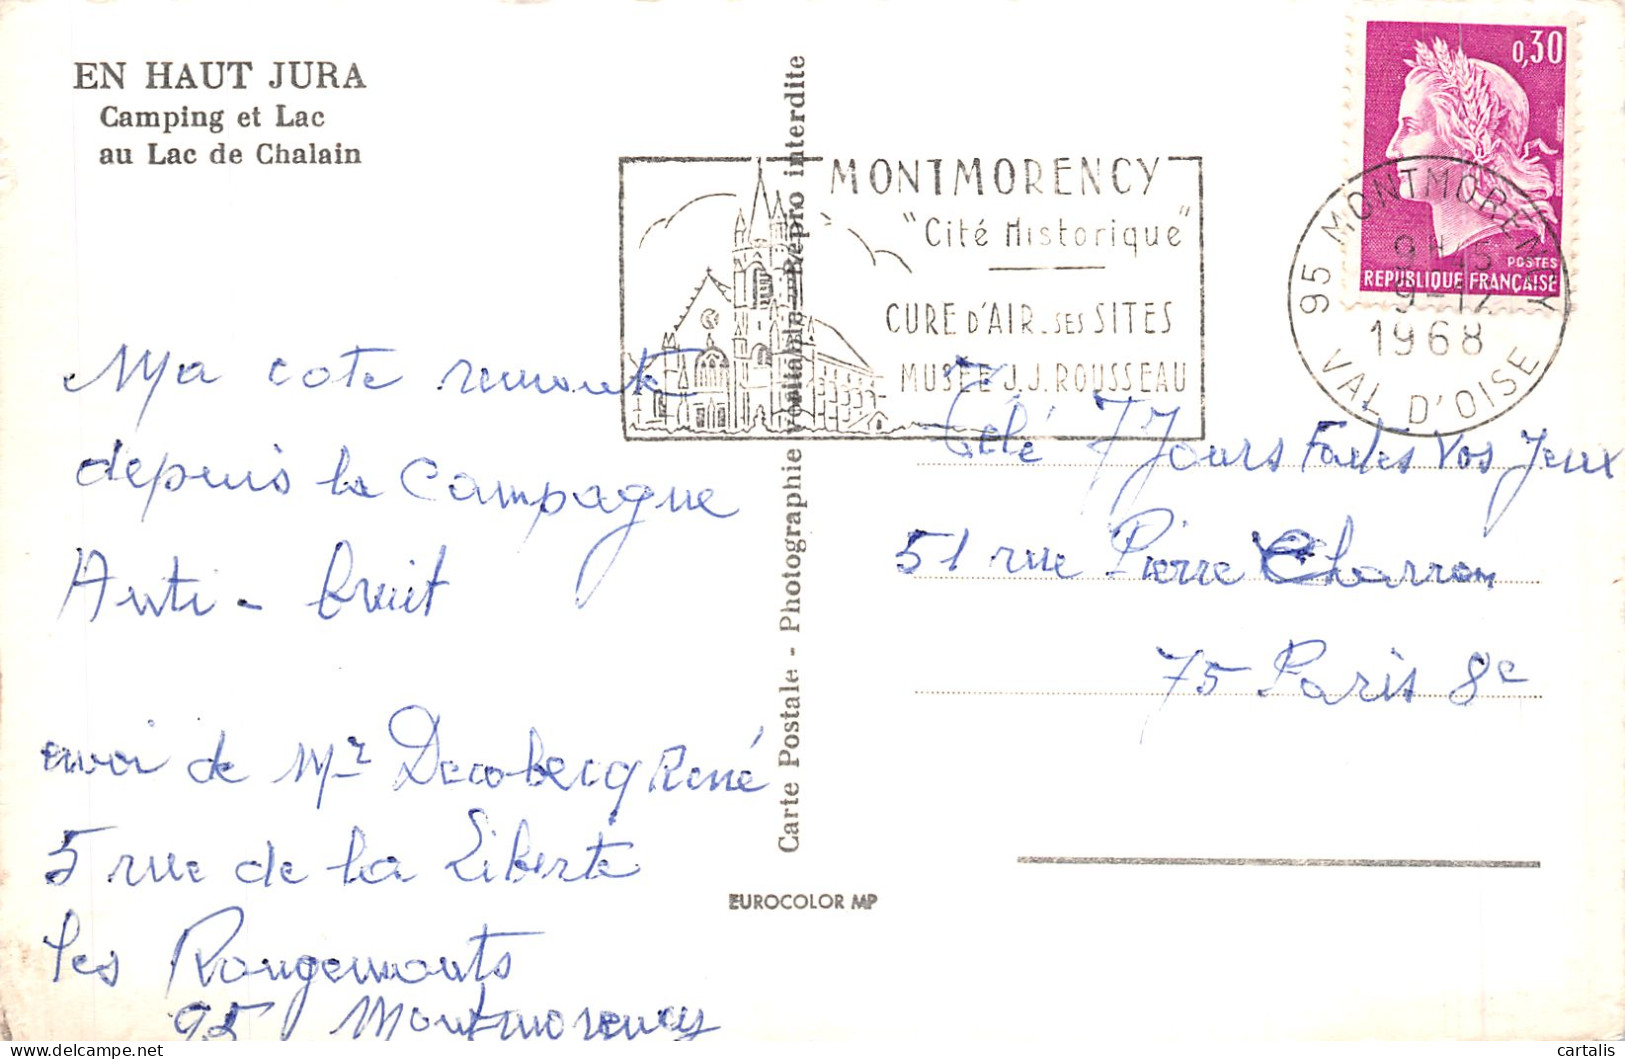 EN HAUT JURA
Camping et Lac
au Lac de Chalain
Ma cote remonte
depuis la Campagne
Anti - bruit
envoi de Mr René
5 rue de la Liberté
les Rougemonts
95 Montmorency
Carte Postale - Photographie véritable - Repro interdite
EUROCOLOR MP
MONTMORENCY
"Cité Historique"
CURE D'AIR. SES SITES
MUSÉE J.J. ROUSSEAU
0,30
POSTES
REPUBLIQUE FRANÇAISE
95 MONTMORENCY
9-12
1968
VAL D'OISE
Télé 7 Jours Faites Vos Jeux
51 rue Pierre Charron
75 Paris 8e
cartalis